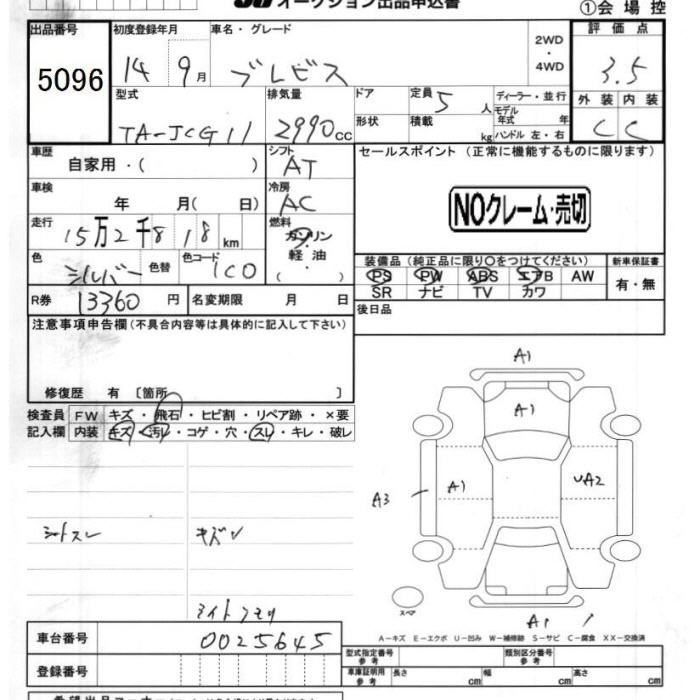 オークション出品申込書
①会場控
出品番号
5096
初度登録年月
14 9月
車名・グレード
ブレビス
2WD
・
4WD
評価点
3.5
外装 内装
C C
型式
TA-JCG11
排気量
2990cc
ドア
形状
定員 5人
積載 kg
ディーラー・並行
モデル
年式 年
ハンドル 左・右
車歴
自家用・( )
シフト
AT
車検
年 月( 日)
冷房
AC
走行
15万2千818km
燃料
ガソリン
・
軽油
( )
色
シルバー 色替
色コード
1C0
R券 13360円
名変期限 月 日
セールスポイント (正常に機能するものに限ります)
NOクレーム・売切
装備品 (純正品に限り○をつけてください)
PS PW ABS エアB AW
SR ナビ TV カワ
新車保証書
有・無
後日品
注意事項申告欄(不具合内容等は具体的に記入して下さい)
修復歴 有 〔箇所 〕
検査員
記入欄
FW キズ・飛石・ヒビ割・リペア跡・×要
内装 キズ・汚レ・コゲ・穴・スレ・キレ・破レ
シートスレ
キズソ
ライトクモリ
A1
A1
A1
UA2
A3
A1
スペア
A-キズ E-エクボ U-凹み W-補修跡 S-サビ C-腐食 XX-交換済
車台番号 0025645
登録番号
型式指定番号
参考
類別区分番号
参考
車庫証明用
参考
長さ cm
幅 cm
高さ cm